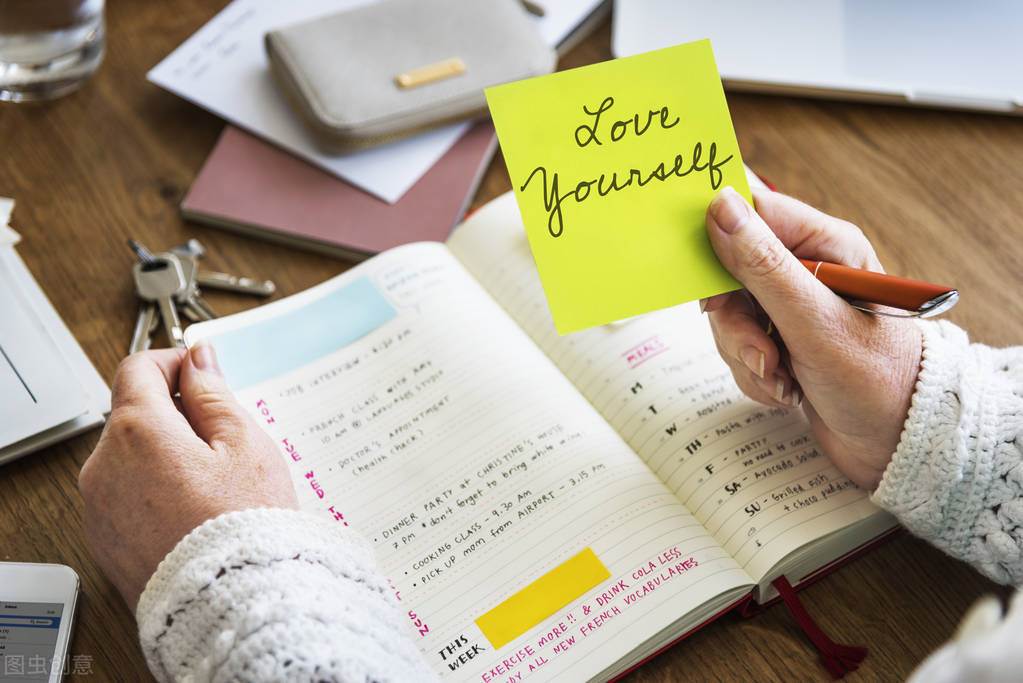 Love
Yourself
JOB INTERVIEW - 4.30 pm
MON
• FRENCH CLASS WITH AMY
10 am @ LANGUAGES STUDIO
TUE
• DOCTOR'S APPOINTMENT
(health check?)
WED
TH
• DINNER PARTY at CHRISTINE'S HOUSE
7 pm * don't forget to bring white wine
• COOKING CLASS - 9.30 AM
• PICK UP mom from AIRPORT - 3.15 pm
SUN
THIS
WEEK
EXERCISE MORE!! & DRINK COLA LESS
ALL NEW FRENCH VOCABULARIES
MEALS
M -
T -
Roasted
W - Pasta with
TH - PARTY!
no need to cook
F - Avocado Salad
SA - Grilled fish
+ choco pudding
SU -
Inbox
图虫创意